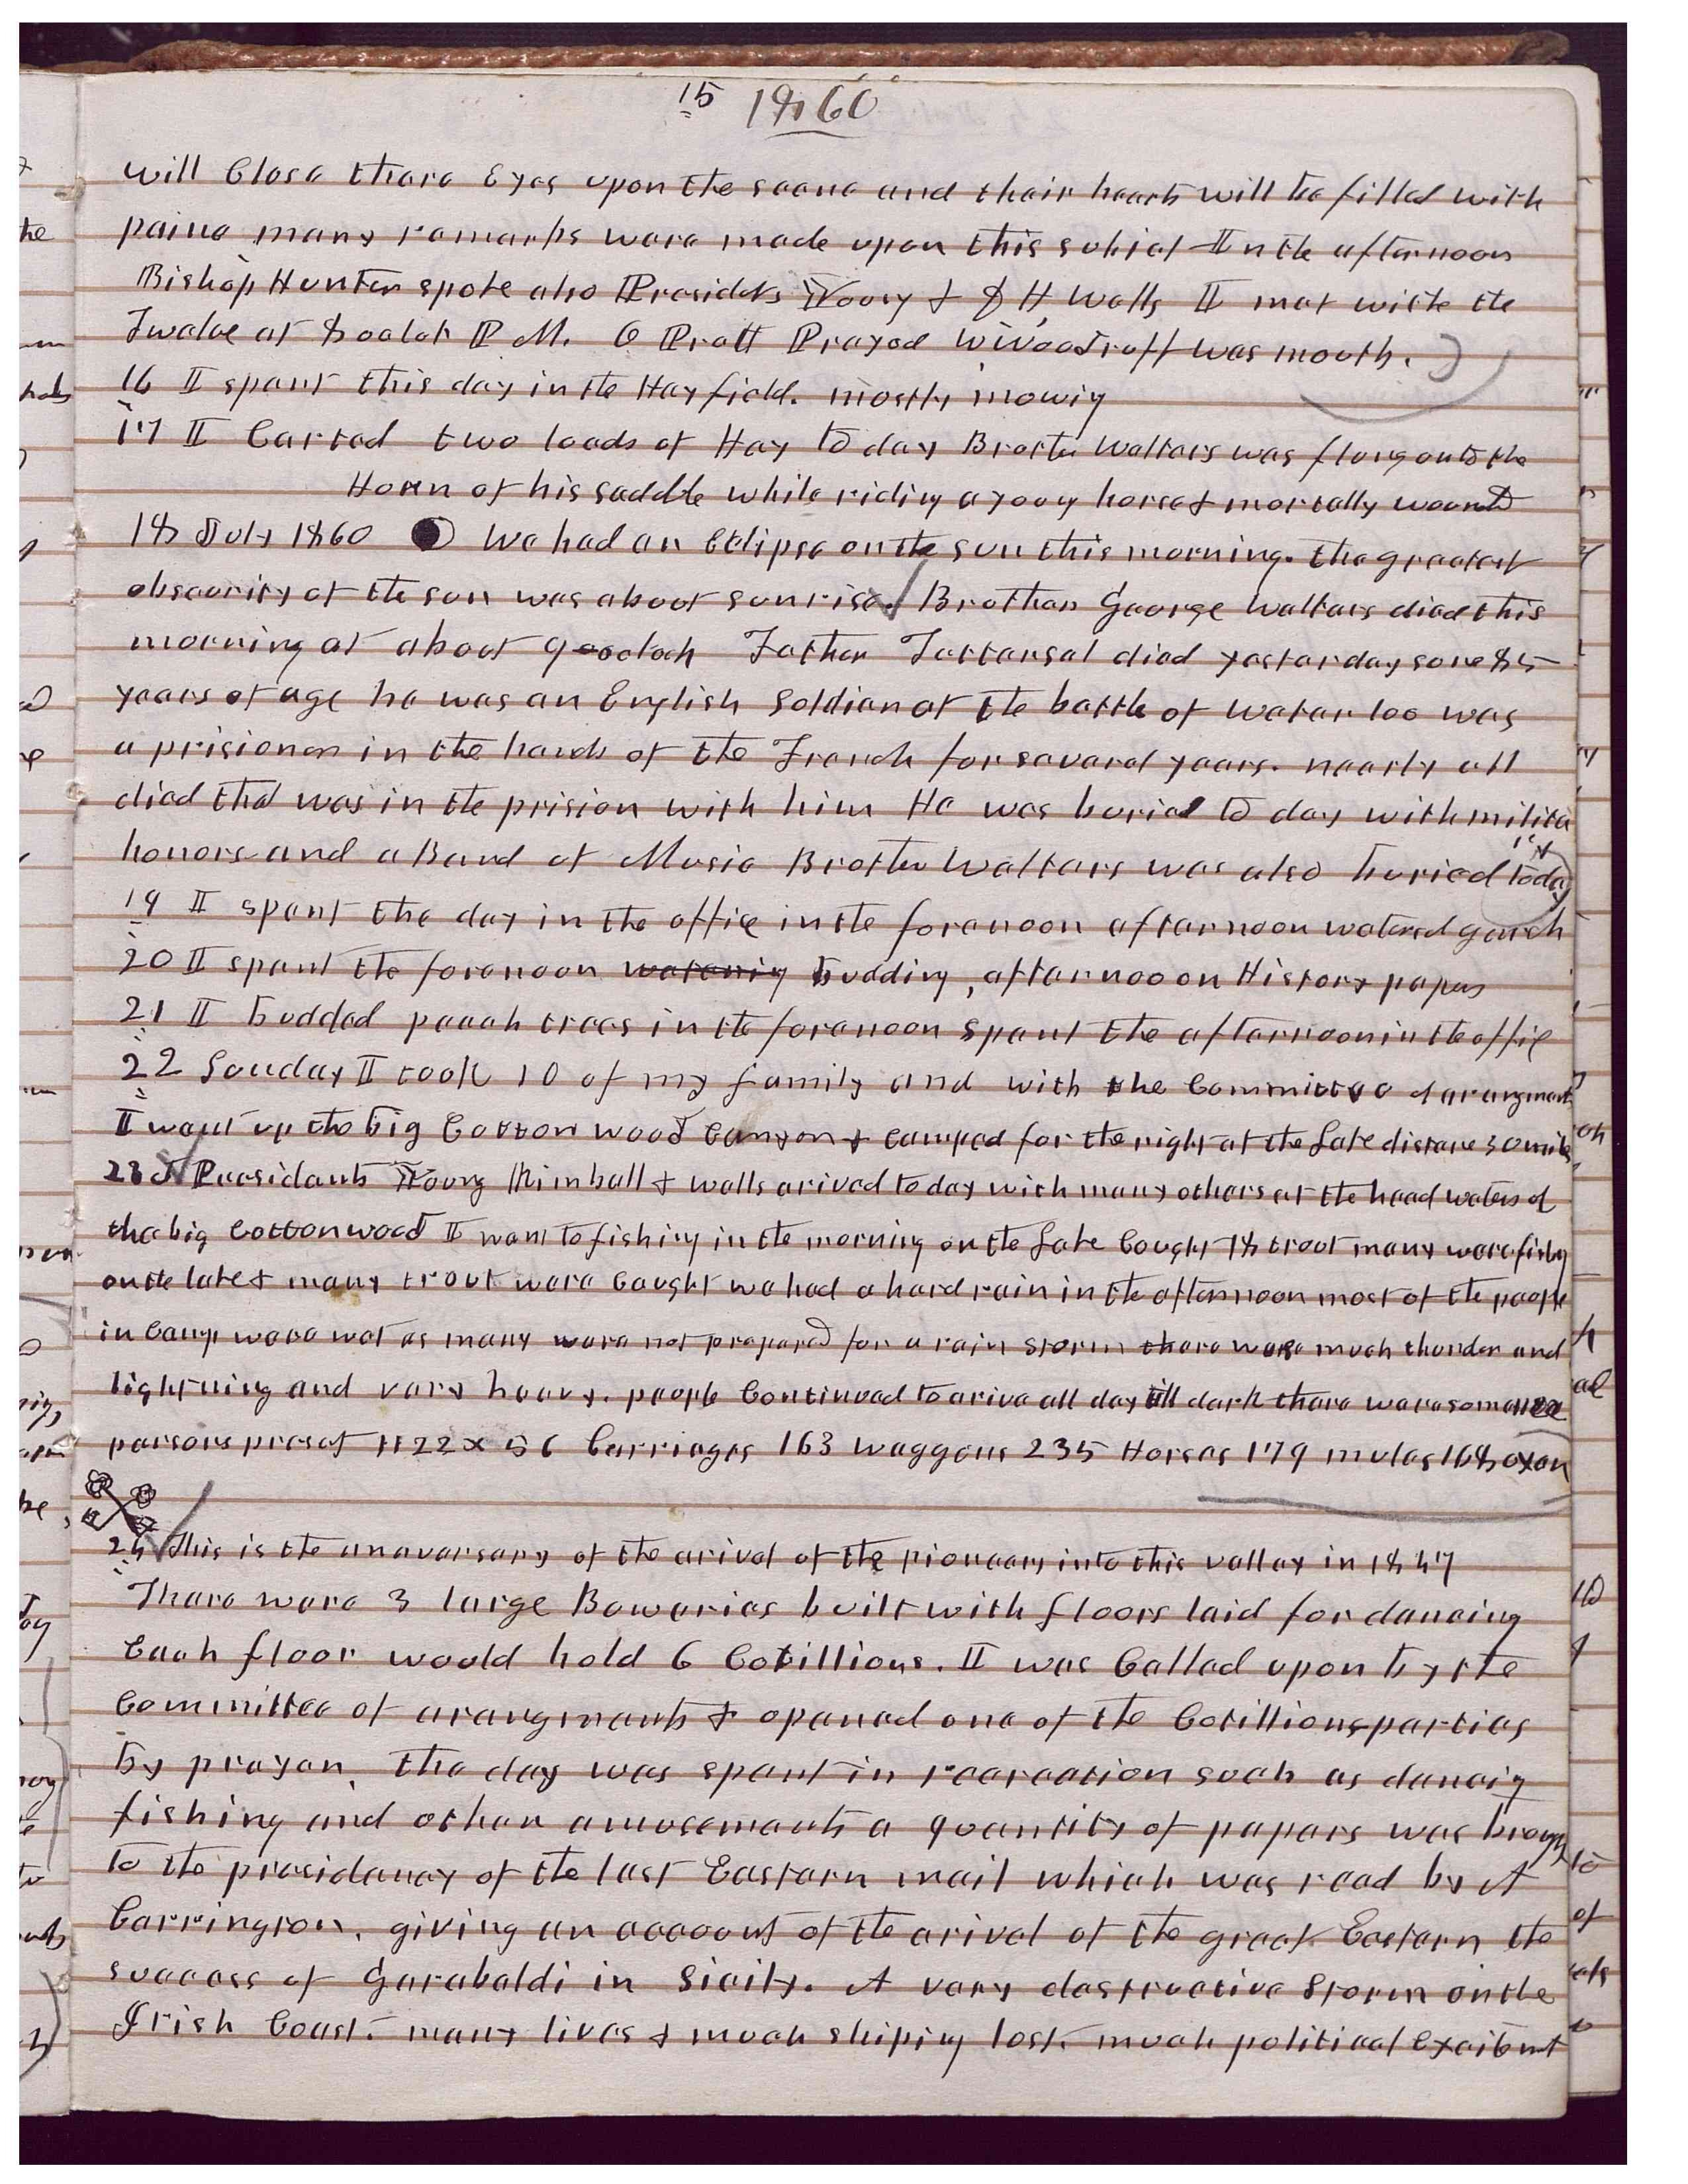 15 1860
will Close there Eyes upon the scene and their hearts will be filled with
paine many remarks were made upon this subject I n the afternoon
Bishop Hunter spoke also Presidets Young & D H Wells I met with the
Twelve at 8 oclok P M. O Pratt Prayed W Woodruff was mouth.
16 I spent this day in the Hay field. mostly mowig
17 I Carted two loads of Hay to day Brother Walters was flung onto the
Horn of his saddle while riding a young horse & mortally wound
18 July 1860 We had an Eclipse on the sun this morning. the greatest
obscurity of the sun was about sunrise. Brother George Walters died this
morning at about 9 oclock Father Tattersal died yesterday some 85
years of age he was an English Soldier at the battle of Waterloo was
a prisioner in the hands of the French for several years. nearly all
died that was in the prision with him He was buried to day with milita
ry
honors and a Band of Music Brother Walters was also buried today
19 I spent the day in the office in the forenoon afternoon watered garden
20 I spent the forenoon watering budding, afternooon History papers
21 I budded peach trees in the forenoon spent the afternoon in the office
22 Sunday I took 10 of my family and with the Committee of arangment
I went up the big Cotton wood Canyon & camped for the night at the Lake distance 30 miles
23d Presidents Young Kimball & Wells arived to day with many others at the head waters of
the big Cottonwood I went to fishing in the morning on the Lake Caught 18 trout many were fishing
on the lake & many trout were Caught we had a hard rain in the afternoon most of the people
in Camp were wet as many were not prepared for a rain storm there was much thunder and
lightning and very heavy. people Continued to arive all day till dark there were some
persons preset 1122 x 56 Carriages 163 waggons 235 Horses 179 mules 168 oxen
24 This is the anaversary of the arival of the pioneers into this valley in 1847
There were 3 large Boweries built with floors laid for dancing
Each floor would hold 6 Cotillions. I was Called upon by the
Committee of arangments & opened one of the Cotillions parties
by prayer. the day was spent in recreation such as dancig
fishing and other amusements a quantity of papers was brough
to the presidency of the last Eastern mail which was read by A
Carrington. giving an account of the arival of the great Eastern the
success of Garabaldi in Sicily. A very destructive Storm on the
Irish Coast. many lives & much shiping lost. much political Excitmt